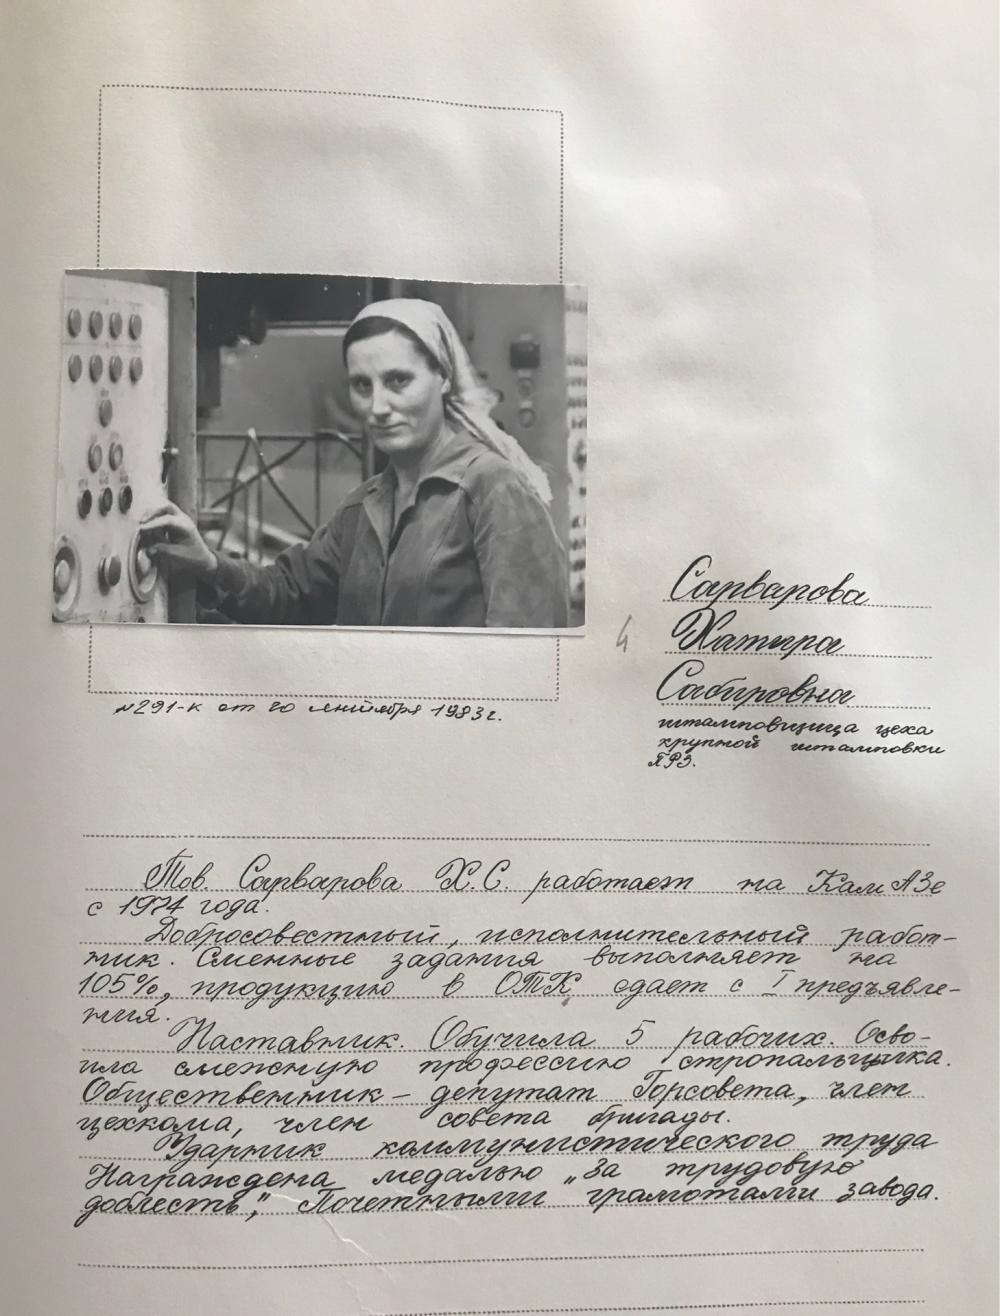 №291-к от 20 сентября 1983г.
4
Сарварова
Хатира
Сабировна
штамповщица цеха
крупной штамповки
ПРЗ.
Тов. Сарварова Х.С. работает на КамАЗе
с 1974 года.
Добросовестный, исполнительный работ-
ник. Сменные задания выполняет на
105%, продукцию в ОТК сдает с I предъявле-
ния.
Наставник. Обучила 5 рабочих. Осво-
ила смежную профессию стропальщика.
Общественник – депутат Горсовета, член
цехкома, член совета бригады.
Ударник коммунистического труда
Награждена медалью „За трудовую
доблесть", Почетными грамотами завода.